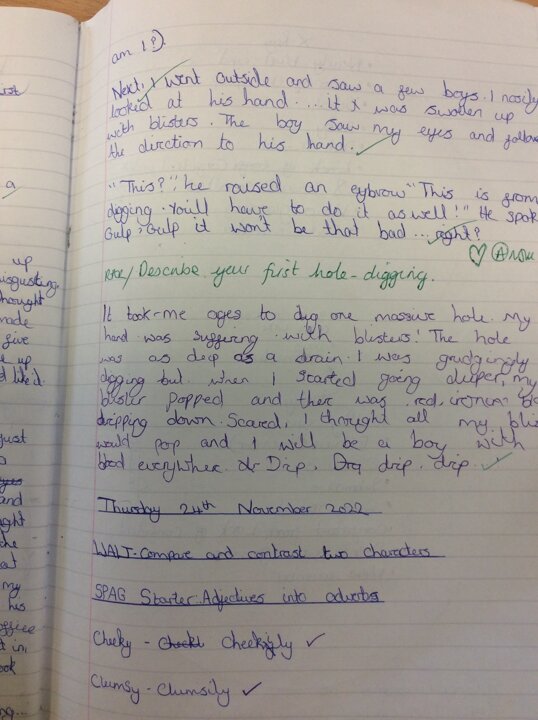 am I?).
Next, I went outside and saw a few boys. I nosily
looked at his hand... it was swolen up
with blisters. The boy saw my eyes and follow
the direction to his hand.
"This?" he raised an eybrow "This is from
digging. You'll have to do it as well!" He spok
Gulp, Gulp it won't be that bad... right?
Describe your first hole-digging.
It took me ages to dig one massive hole. My
hand was suffering with blisters! The hole
was as deep as a drain. I was grudgingly
digging but when I started going deeper, my
blister popped and there was red,
dripping down. Scared, I thought all my blis
would pop and I will be a boy with
blood everywher. Drip, Drip, drip, drip.
Thursday 24th November 2022
WALT: Compare and contrast two characters
SPAG Starter: Adjectives into adverbs
Cheeky - Cheekily
Clumsy - Clumsily
a
up
isgusting.
hought
made
give
e up
d like'd.
just
and
ught
she
at
my
his
office
t in,
ook